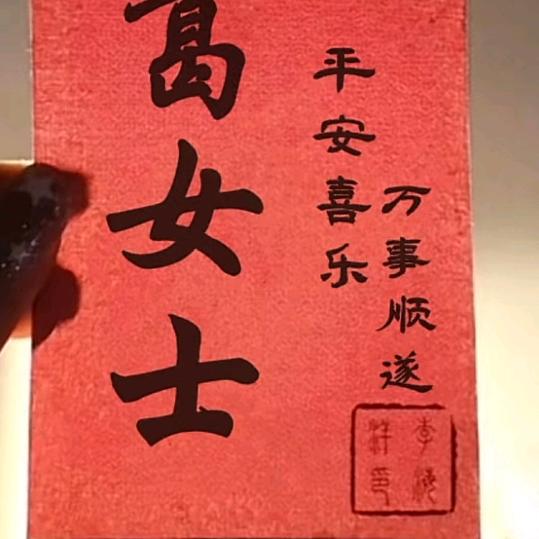 葛女士
平安喜乐
万事顺遂